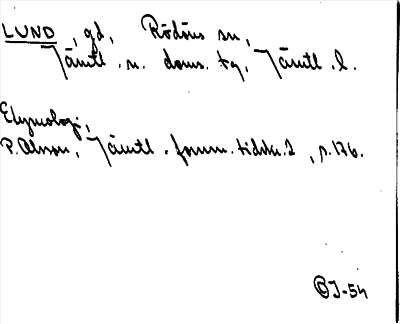 LUND, gd, Rödöns sn,
Jämtl. n. doms. tg, Jämtl. l.
Etymologi,
P. Olsson, Jämtl. fornm. tidskr. 2, s. 176.
J-54